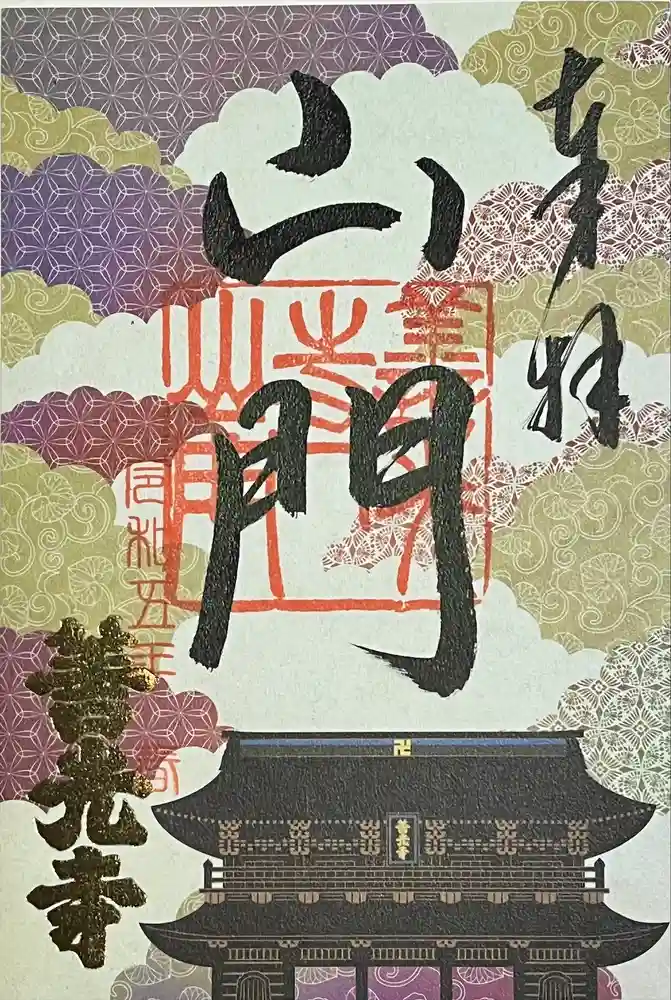 奉拝
山門
善光寺
善光寺
令和五年春
善光寺
山門